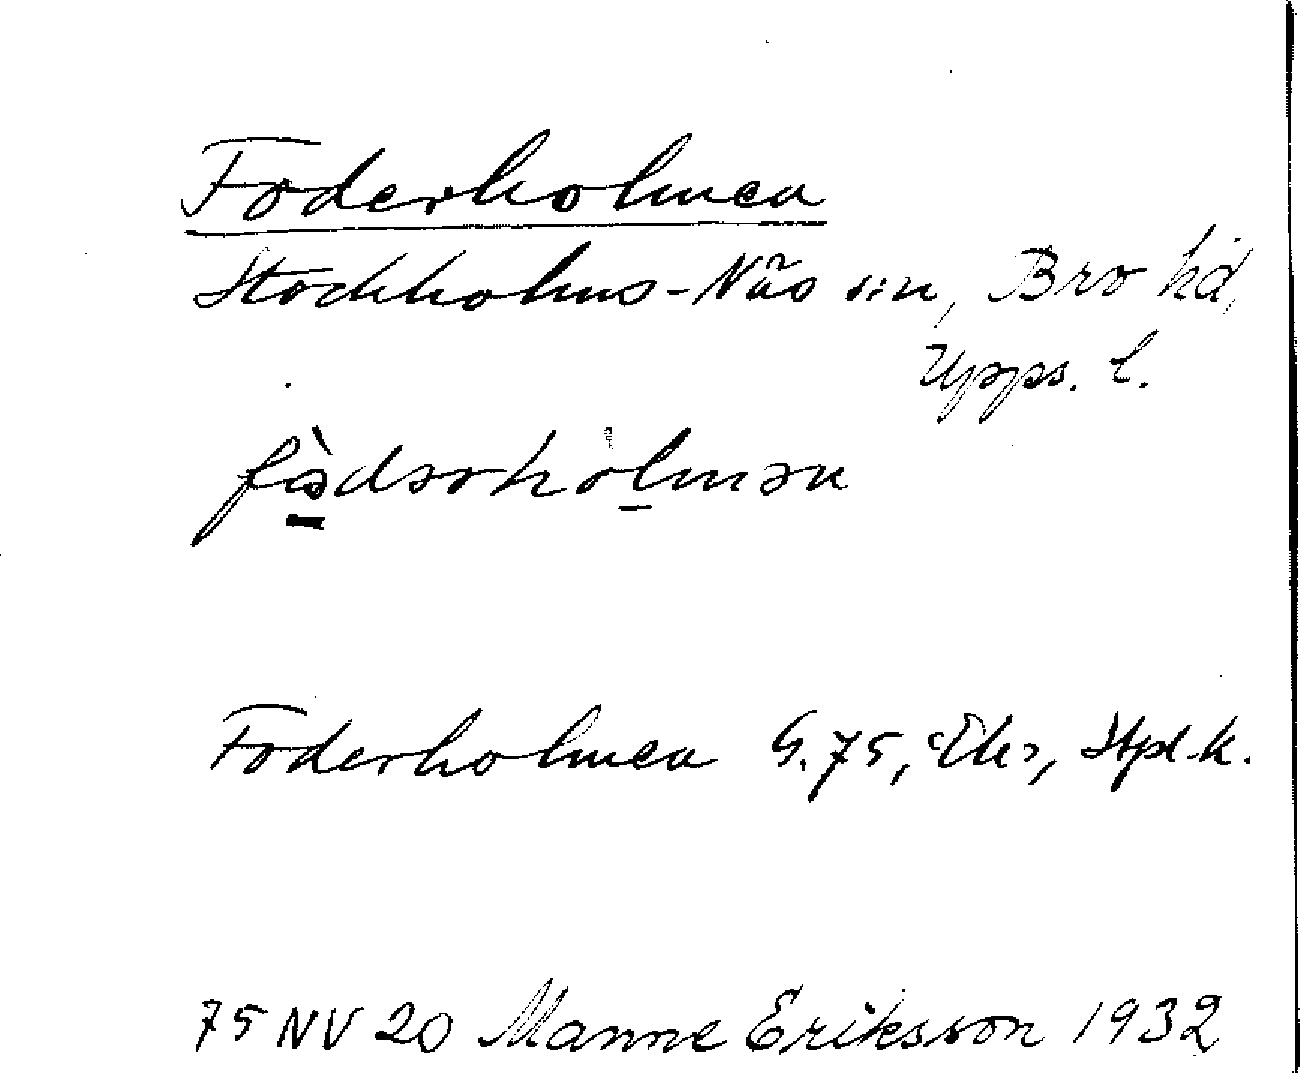 Foderholmen
Stockholms-Näs sn, Bro hd,
Upps. l.
Foderholmen G. 75, Ek, 
75 NV 20 Manne Eriksson 1932